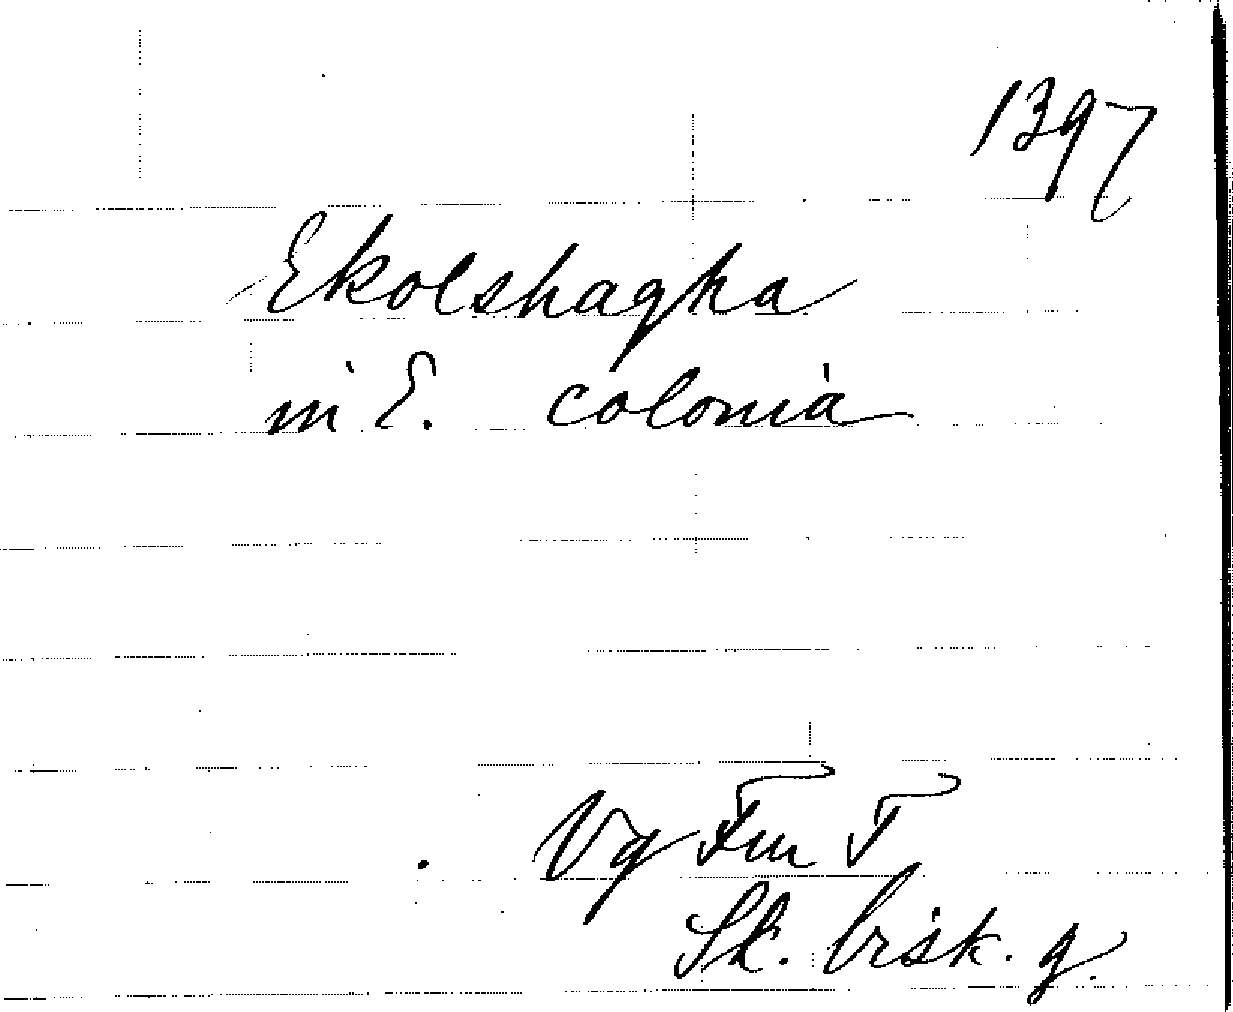 1397
Ekolshagha
in E. colonia
Vg Fm T
Sk. bisk. g.